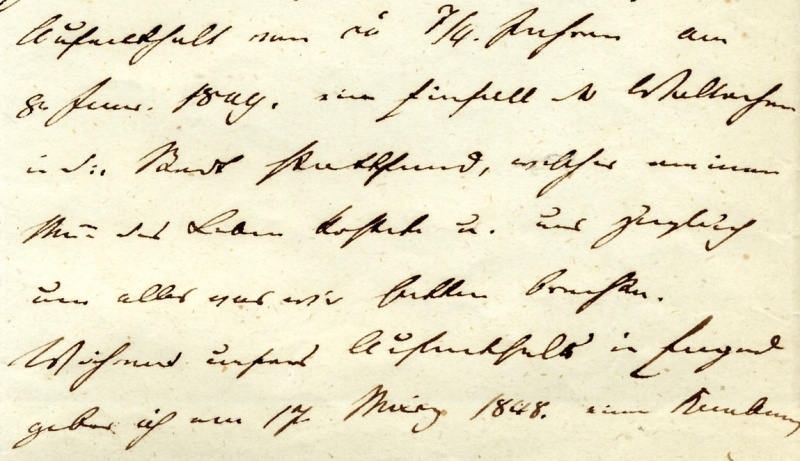 Aufenthalt von ca 7/4. Jahren am
8n Janr. 1849. ein Einfall der Wallachen
in die Stadt stattfand, welcher meinem
Mann das Leben kostete u. uns zugleich
um alles was wir hatten brachte.
Während unsers Aufenthalts in Enyed
gebar ich am 17 März 1848. einen Knaben